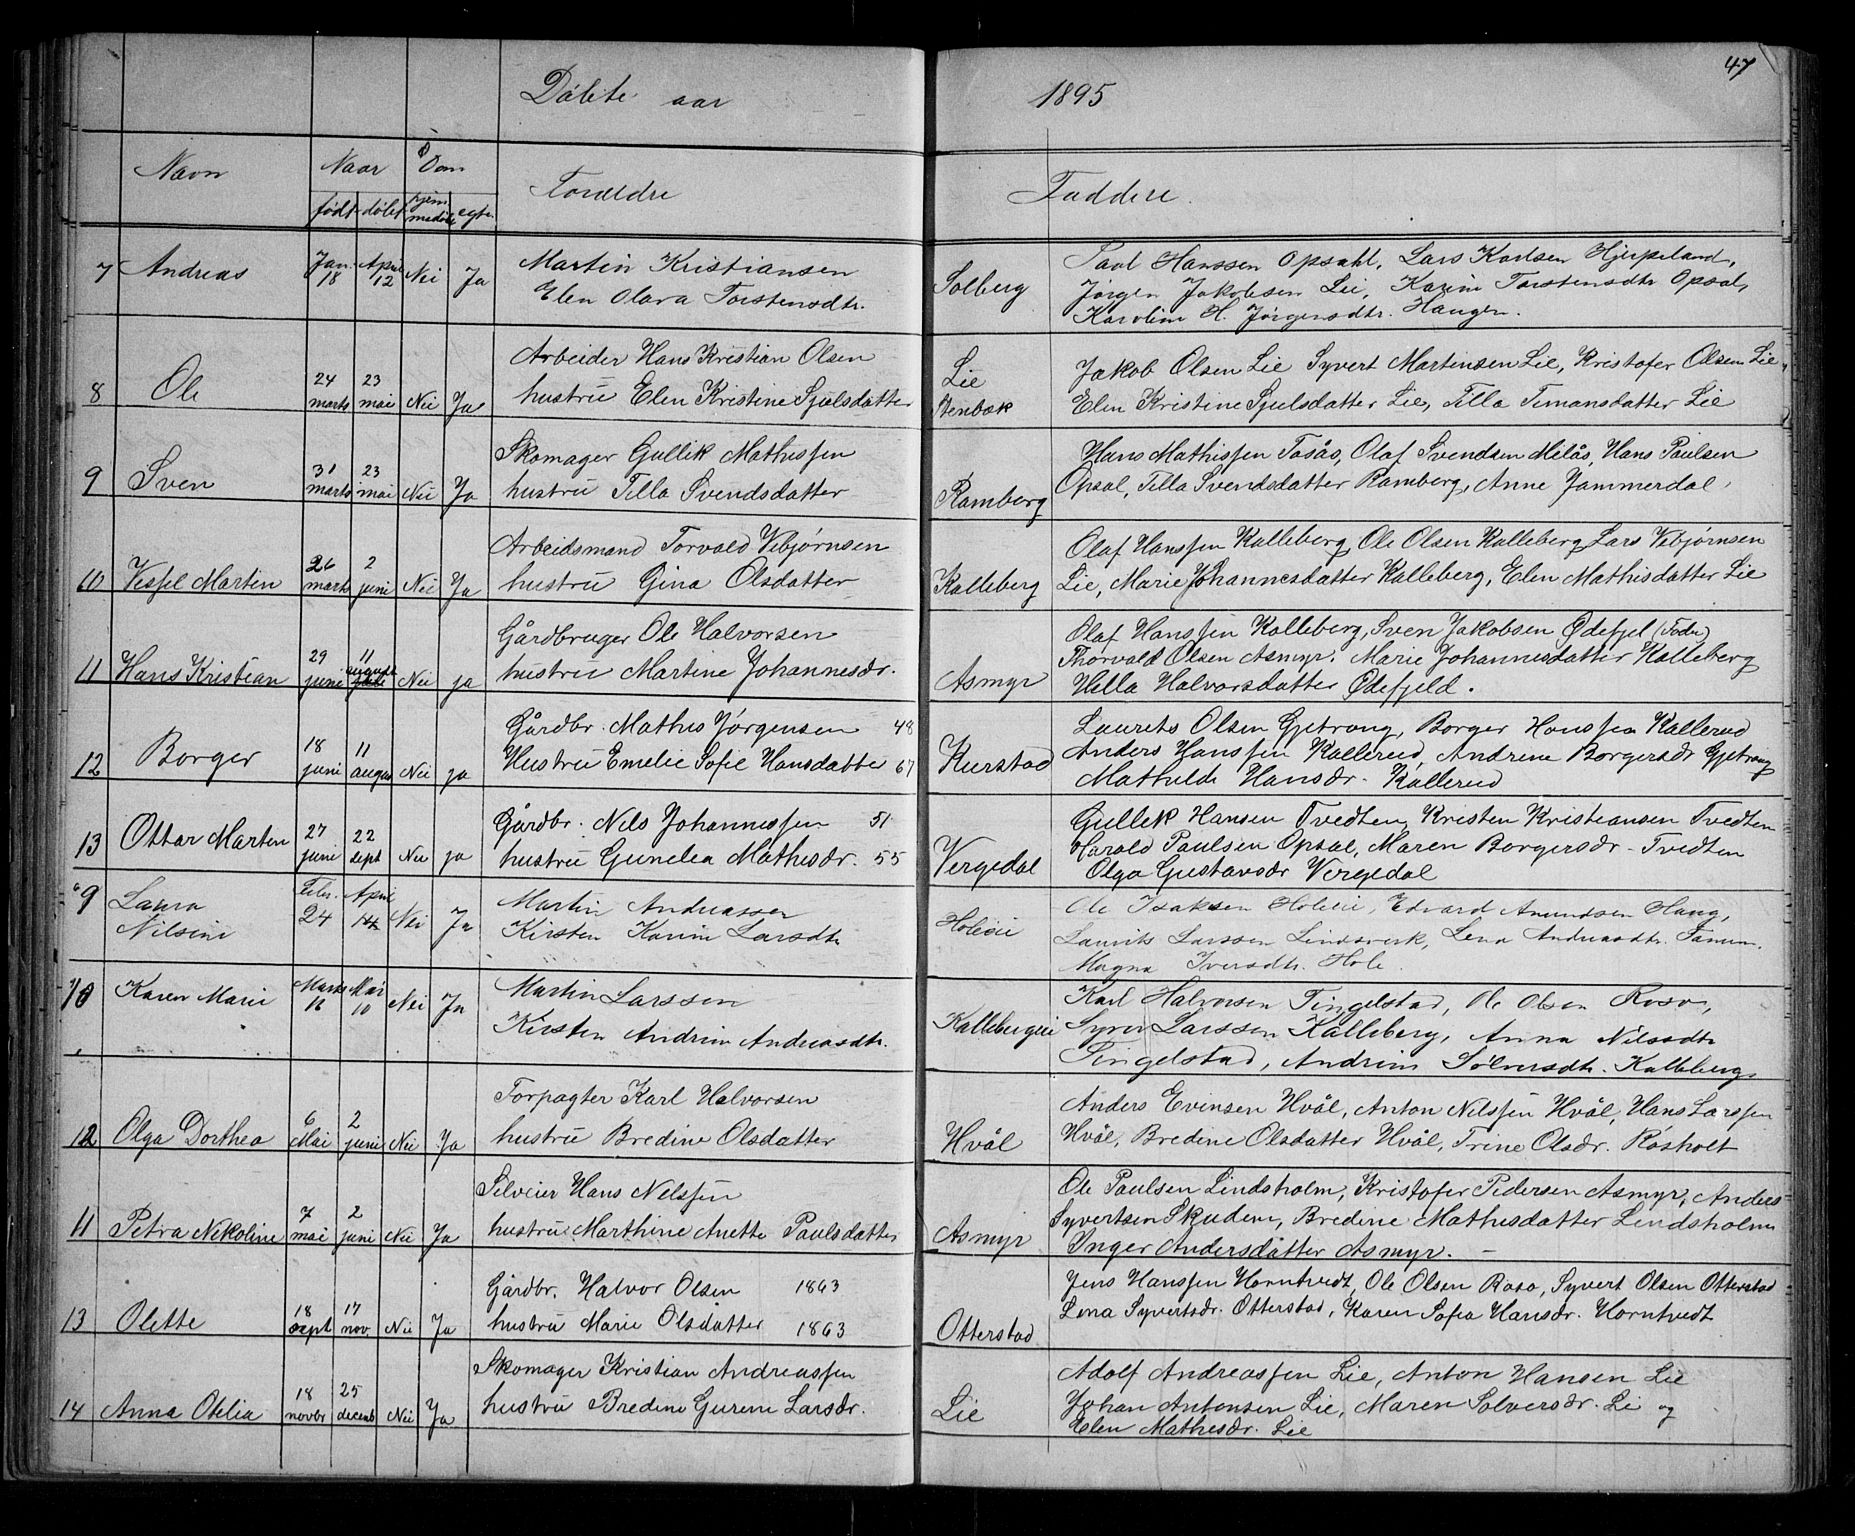 47
Døbte aar 1895
Navn Naar Om Forældre Faddere.
født døbt hjem medøbt egte
7 Andreas Jan. 18 April 12 Nei Ja Martin Kristiansen Solberg Paul Hanssen Opsahl, Lars Karlsen Hjerpeland,
Elen Olava Torstensdtr. Jørgen Jakobsen Lie, Karin Torstensdtr Opsal,
Karoline H. Jørgensdtr. Haugen.
8 Ole 24 marts 23 mai Nei Ja Arbeider Hans Kristian Olsen Lie Jakob Olsen Lie Syvert Martinsen Lie, Kristofer Olsen Lie,
hustru Elen Kristine Sjulsdatter Stenbæk Elen Kristine Sjulsdatter Lie, Tilla Timansdatter Lie
9 Sven 31 marts 23 mai Nei Ja Skomager Gullik Mathissen Ramberg Hans Mathissen Tosås, Olaf Svendsen Milås, Hans Paulsen
hustru Tilla Svendsdatter Opsal, Tilla Svendsdatter Ramberg, Anne Jammerdal,
10 Vessel Martin 26 marts 2 juni Nei Ja Arbeidsmand Torvald Vebjørnsen Kalleberg Olaf Hanssen Kalleberg Ole Olsen Kalleberg Lars Vebjørnsen
hustru Gina Olsdatter Lie, Marie Johannesdatter Kalleberg, Elen Mathisdatter Lie
11 Hans Kristian 29 juni 11 august Nei ja Gårdbruger Ole Halvorsen Asmyr Olaf Hanssen Kolleberg, Sven Jakobsen Ødefjel (Foder)
hustru Martine Johannesdr. Thorvald Olsen Asmyr. Marie Johannesdatter Kalleberg
Hella Halvorsdatter Ødefjeld.
12 Borger 18 juni 11 august Nei ja Gårdbr. Mathis Jørgensen 48 Kurstad Laurits Olsen Gjetrang, Borger Hanssen Kallerud
Hustru Emelie Sofie Hansdatter 67 Anders Hanssen Kallerud, Andrine Borgersdr Gjetrang
Mathilde Hansdr. Kallerud
13 Ottar Marten 27 juni 22 sept Nei ja Gårdbr. Nils Johannessen 51 Vergedal Gullek Hansen Tvedten, Kristen Kristiansen Tvedten
hustru Gunelia Mathisdr. 55 Harald Paulsen Opsal, Maren Borgersdr. Tvedten
Olga Gustavsdr Vergedal
9 Laura Nilsine Febr. 24 April 14 Nei Ja Martin Andreassen Holeeie Ole Isaksen Holeeie, Edvard Amundsen Haug,
Kirsten Karine Larsdtr Laurits Larssen Lindsverk, Lena Andreasdtr. Famun.
Magna Iversdtr. Hole.
10 Karen Marie Marts 16 Mai 10 Nei Ja Martin Larssen Kallebergeie Karl Halvorsen Tingelstad, Ole Olsen Roso,
Kirsten Andrine Andreasdtr. Syver Larssen Kalleberg, Anna Nilssdtr
Tingelstad, Andrine Sølversdtr. Kalleberg.
12 Olga Dorthea 6 Mai 2 juni Nei Ja Forpagter Karl Halvorsen Hvål Anders Evensen Hvål, Anton Nilssen Hvål, Hans Larssen
hustru Bredine Olsdatter Hvål, Bredine Olsdatter Hvål, Trine Olsdr. Røsholt
11 Petra Nikoline 7 mai 2 juni Nei Ja Selveier Hans Nelssen Asmyr Ole Paulsen Lindsholm, Kristofer Pedersen Asmyr, Anders
hustru Marthine Anette Paulsdatter Syvertsen Skuden, Bredine Mathisdatter Lindsholm
Inger Andersdatter Asmyr. —
13 Olette 18 sept 17 nov. Nei Ja Gårdbr. Halvor Olsen 1863 Otterstad Jens Hanssen Horntvedt, Ole Olsen Roso, Syvert Olsen Otterstad
hustru Marie Olsdatter 1863 Lina Syvertsdr. Otterstad, Karen Sofia Hansdr. Horntvedt
14 Anna Otelia 18 novbr 25 decemb Nei Ja Skomager Kristian Andreassen Lie Adolf Andreassen Lie, Anton Hansen Lie
hustru Bredine Gurene Larsdr. Johan Antonsen Lie, Maren Solversdr. Li og
Elen Mathisdr. Lie